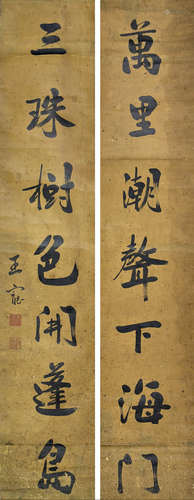 萬里潮聲下海門
三珠樹色開蓬島
王寵